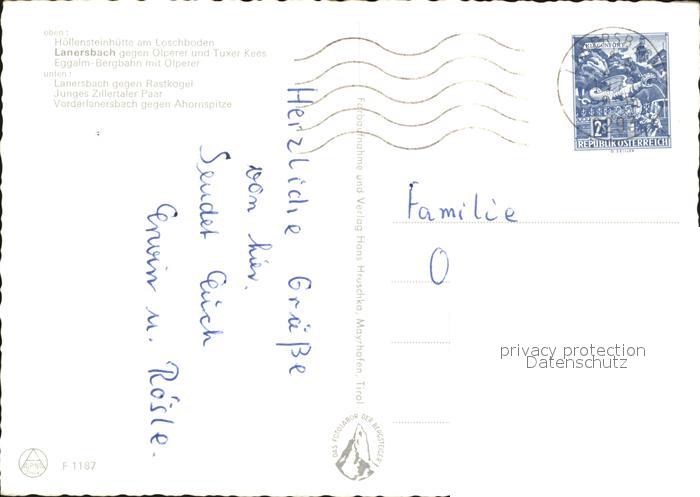 oben:
Höllensteinhütte am Loschboden
Lanersbach gegen Olperer und Tuxer Kees
Eggalm-Bergbahn mit Olperer
unten:
Lanersbach gegen Rastkogel
Junges Zillertaler Paar
Vorderlanersbach gegen Ahornspitze
Herzliche Grüße
von hier.
Sendet Euch
Erwin u. Rösle.
Farbaufnahme und Verlag Hans Hruschka, Mayrhofen, Tirol
DAS FOTOLABOR DER BERGSTEIGER
KLAGENFURT
2
REPUBLIK ÖSTERREICH
Familie
O
privacy protection
Datenschutz
F 1187